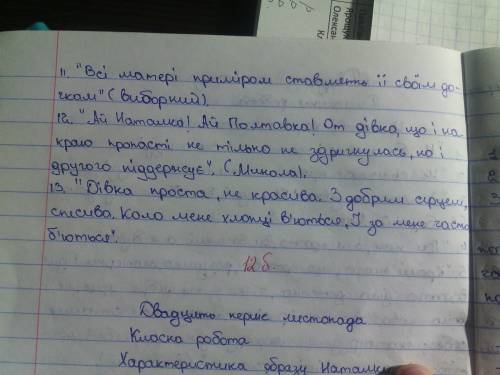 11. "Всі матері приміром ставлять її своїм до-
чкам" (Виборний).
12. "Ай Наталка! Ай Полтавка! От дівка, що і на
краю пропасті не тільки не здригнулась, но і
другого піддержує". (Микола).
13. "Дівка проста, не красива. З добрим серцем,
спесива. Коло мене хлопці в'ються, І за мене часто
б'ються".
12 б.
Двадцять перше листопада
Класна робота
Характеристика образу Наталки